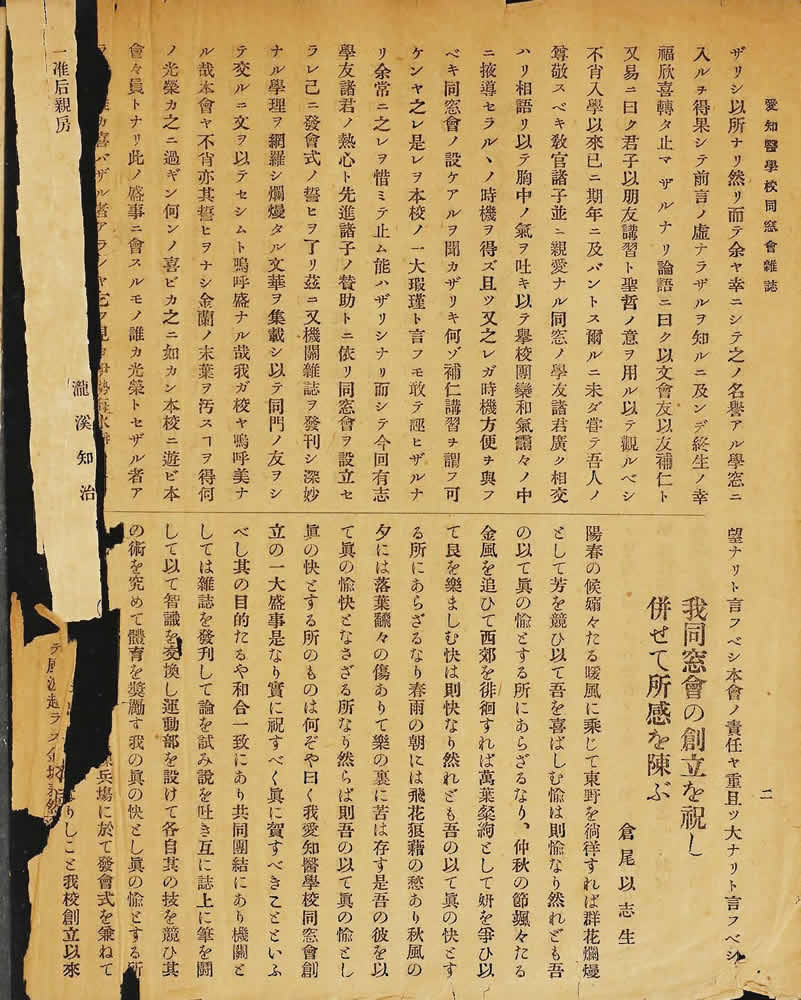 愛知醫學校同窓會雜誌
二
ザリシ以所ナリ然リ而テ余ヤ幸ニシテ之ノ名譽アル學窓ニ
入ルヲ得果シテ前言ノ虛ナラザルヲ知ルニ及ンデ終生ノ幸
福欣喜轉タ止マザルナリ論語ニ曰ク以文會友以友補仁ト
又易ニ曰ク君子以朋友講習ト聖哲ノ意ヲ用ル以テ觀ルベシ
不肖入學以來已ニ期年ニ及バントス爾ルニ未ダ甞テ吾人ノ
尊敬スベキ敎官諸子並ニ親愛ナル同窓ノ學友諸君廣ク相交
ハリ相語リ以テ胸中ノ氣ヲ吐キ以テ擧校團欒和氣靄々ノ中
ニ掖導セラルヽノ時機ヲ得ズ且ツ又之レガ時機方便ヲ與フ
ベキ同窓會ノ設ケアルヲ聞カザリキ何ゾ補仁講習ヲ謂フ可
ケンヤ之レ是レヲ本校ノ一大瑕瑾ト言フモ敢テ誣ヒザルナ
リ余常ニ之レヲ惜ミテ止ム能ハザリシナリ而シテ今回有志
學友諸君ノ熱心ト先進諸子ノ賛助トニ依リ同窓會ヲ設立セ
ラレ己ニ發會式ノ誓ヒヲ了リ茲ニ又機關雜誌ヲ發刊シ深妙
ナル學理ヲ網羅シ爛熳タル文華ヲ集載シ以テ同門ノ友ヲシ
テ交ルニ文ヲ以テセシムト嗚呼盛ナル哉我ガ校ヤ嗚呼美ナ
ル哉本會ヤ不肖亦其誓ヒヲナシ金蘭ノ末葉ヲ汚スヿヲ得何
ノ光榮カ之ニ過ギン何ンノ喜ビカ之ニ如カン本校ニ遊ビ本
會々員トナリ此ノ盛事ニ會スルモノ誰カ光榮トセザル者ア
カ喜バザル者アランヤ
瀧溪知治
一准后親房
望ナリト言フベシ本會ノ責任ヤ重且ツ大ナリト言フベシ
我同窓會の創立を祝し
併せて所感を陳ぶ
倉尾以志生
陽春の候嫋々たる暖風に乘じて東野を徜徉すれば群花爛熳
として芳を競ひ以て吾を喜ばしむ愉は則愉なり然れども吾
の以て眞の愉とする所にあらざるなり、仲秋の節颯々たる
金風を追ひて西郊を徘徊すれば萬葉粲絢として姸を爭ひ以
て良を樂ましむ快は則快なり然れども吾の以て眞の快とす
る所にあらざるなり春雨の朝には飛花狼藉の愁あり秋風の
夕には落葉飜々の傷ありて樂の裏に苦は存す是吾の彼を以
て眞の愉快となさざる所なり然らば則吾の以て眞の愉とし
眞の快とする所のものは何ぞや曰く我愛知醫學校同窓會創
立の一大盛事是なり實に祝すべく眞に賀すべきことといふ
べし其の目的たるや和合一致にあり共同團結にあり機關と
しては雜誌を發刋して論を試み說を吐き互に誌上に筆を鬪
して以て智識を交換し運動部を設けて各自其の技を競ひ其
の術を究めて體育を奬勵す我の眞の快とし眞の愉とする所
兵塲に於て發會式を兼ねて
りしこと我校創立以來